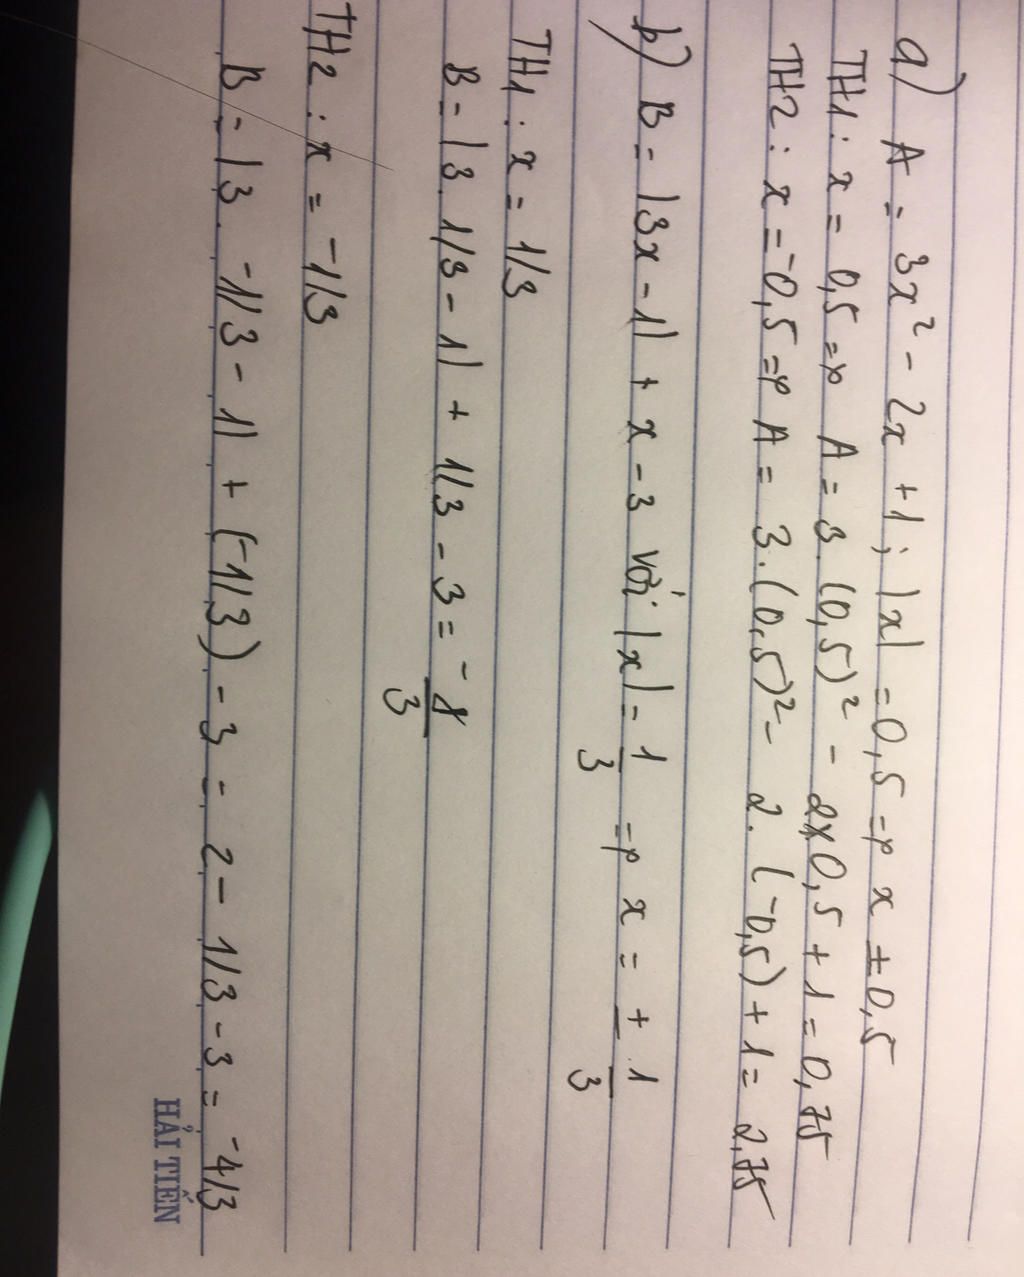 a) A = 3x² - 2x + 1; |x| = 0,5 => x ± 0,5
TH1: x = 0,5 => A = 3.(0,5)² - 2x0,5 + 1 = 0,75
TH2: x = -0,5 => A = 3.(0,5)² - 2.(-0,5) + 1 = 2,75
b) B = |3x - 1| + x - 3 với |x| = 1/3 => x = ± 1/3
TH1: x = 1/3
B = |3. 1/3 - 1| + 1/3 - 3 = -8/3
TH2: x = -1/3
B = |3. -1/3 - 1| + (-1/3) - 3 = 2 - 1/3 - 3 = -4/3
HẢI TIẾN